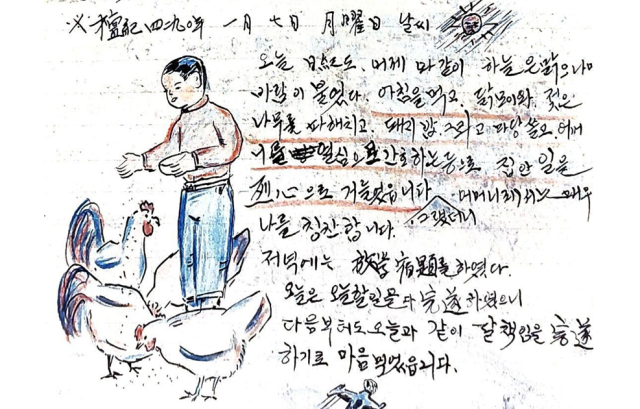 ※ 檀紀 四二九〇年 一月 七日 月曜日 날씨
오늘 日氣도 어제 와 같이 하늘은 맑으나
바람이 불었다. 아침을 먹고, 닭모이와 젖은
나무를 파해치고, 돼지밥 주고 마당 쓸고, 어머
니를 열심으로 간호하는 등으로 집안 일을
열心으로 거들었읍니다 그랬더니 어머니께서는 매우
나를 칭찬합니다.
저녁에는 放学宿題를 하였다.
오늘은 오늘 할일을 다 完遂하였으니
다음부터도 오늘과 같이 할 책임을 完遂
하기로 마음 먹었읍니다.